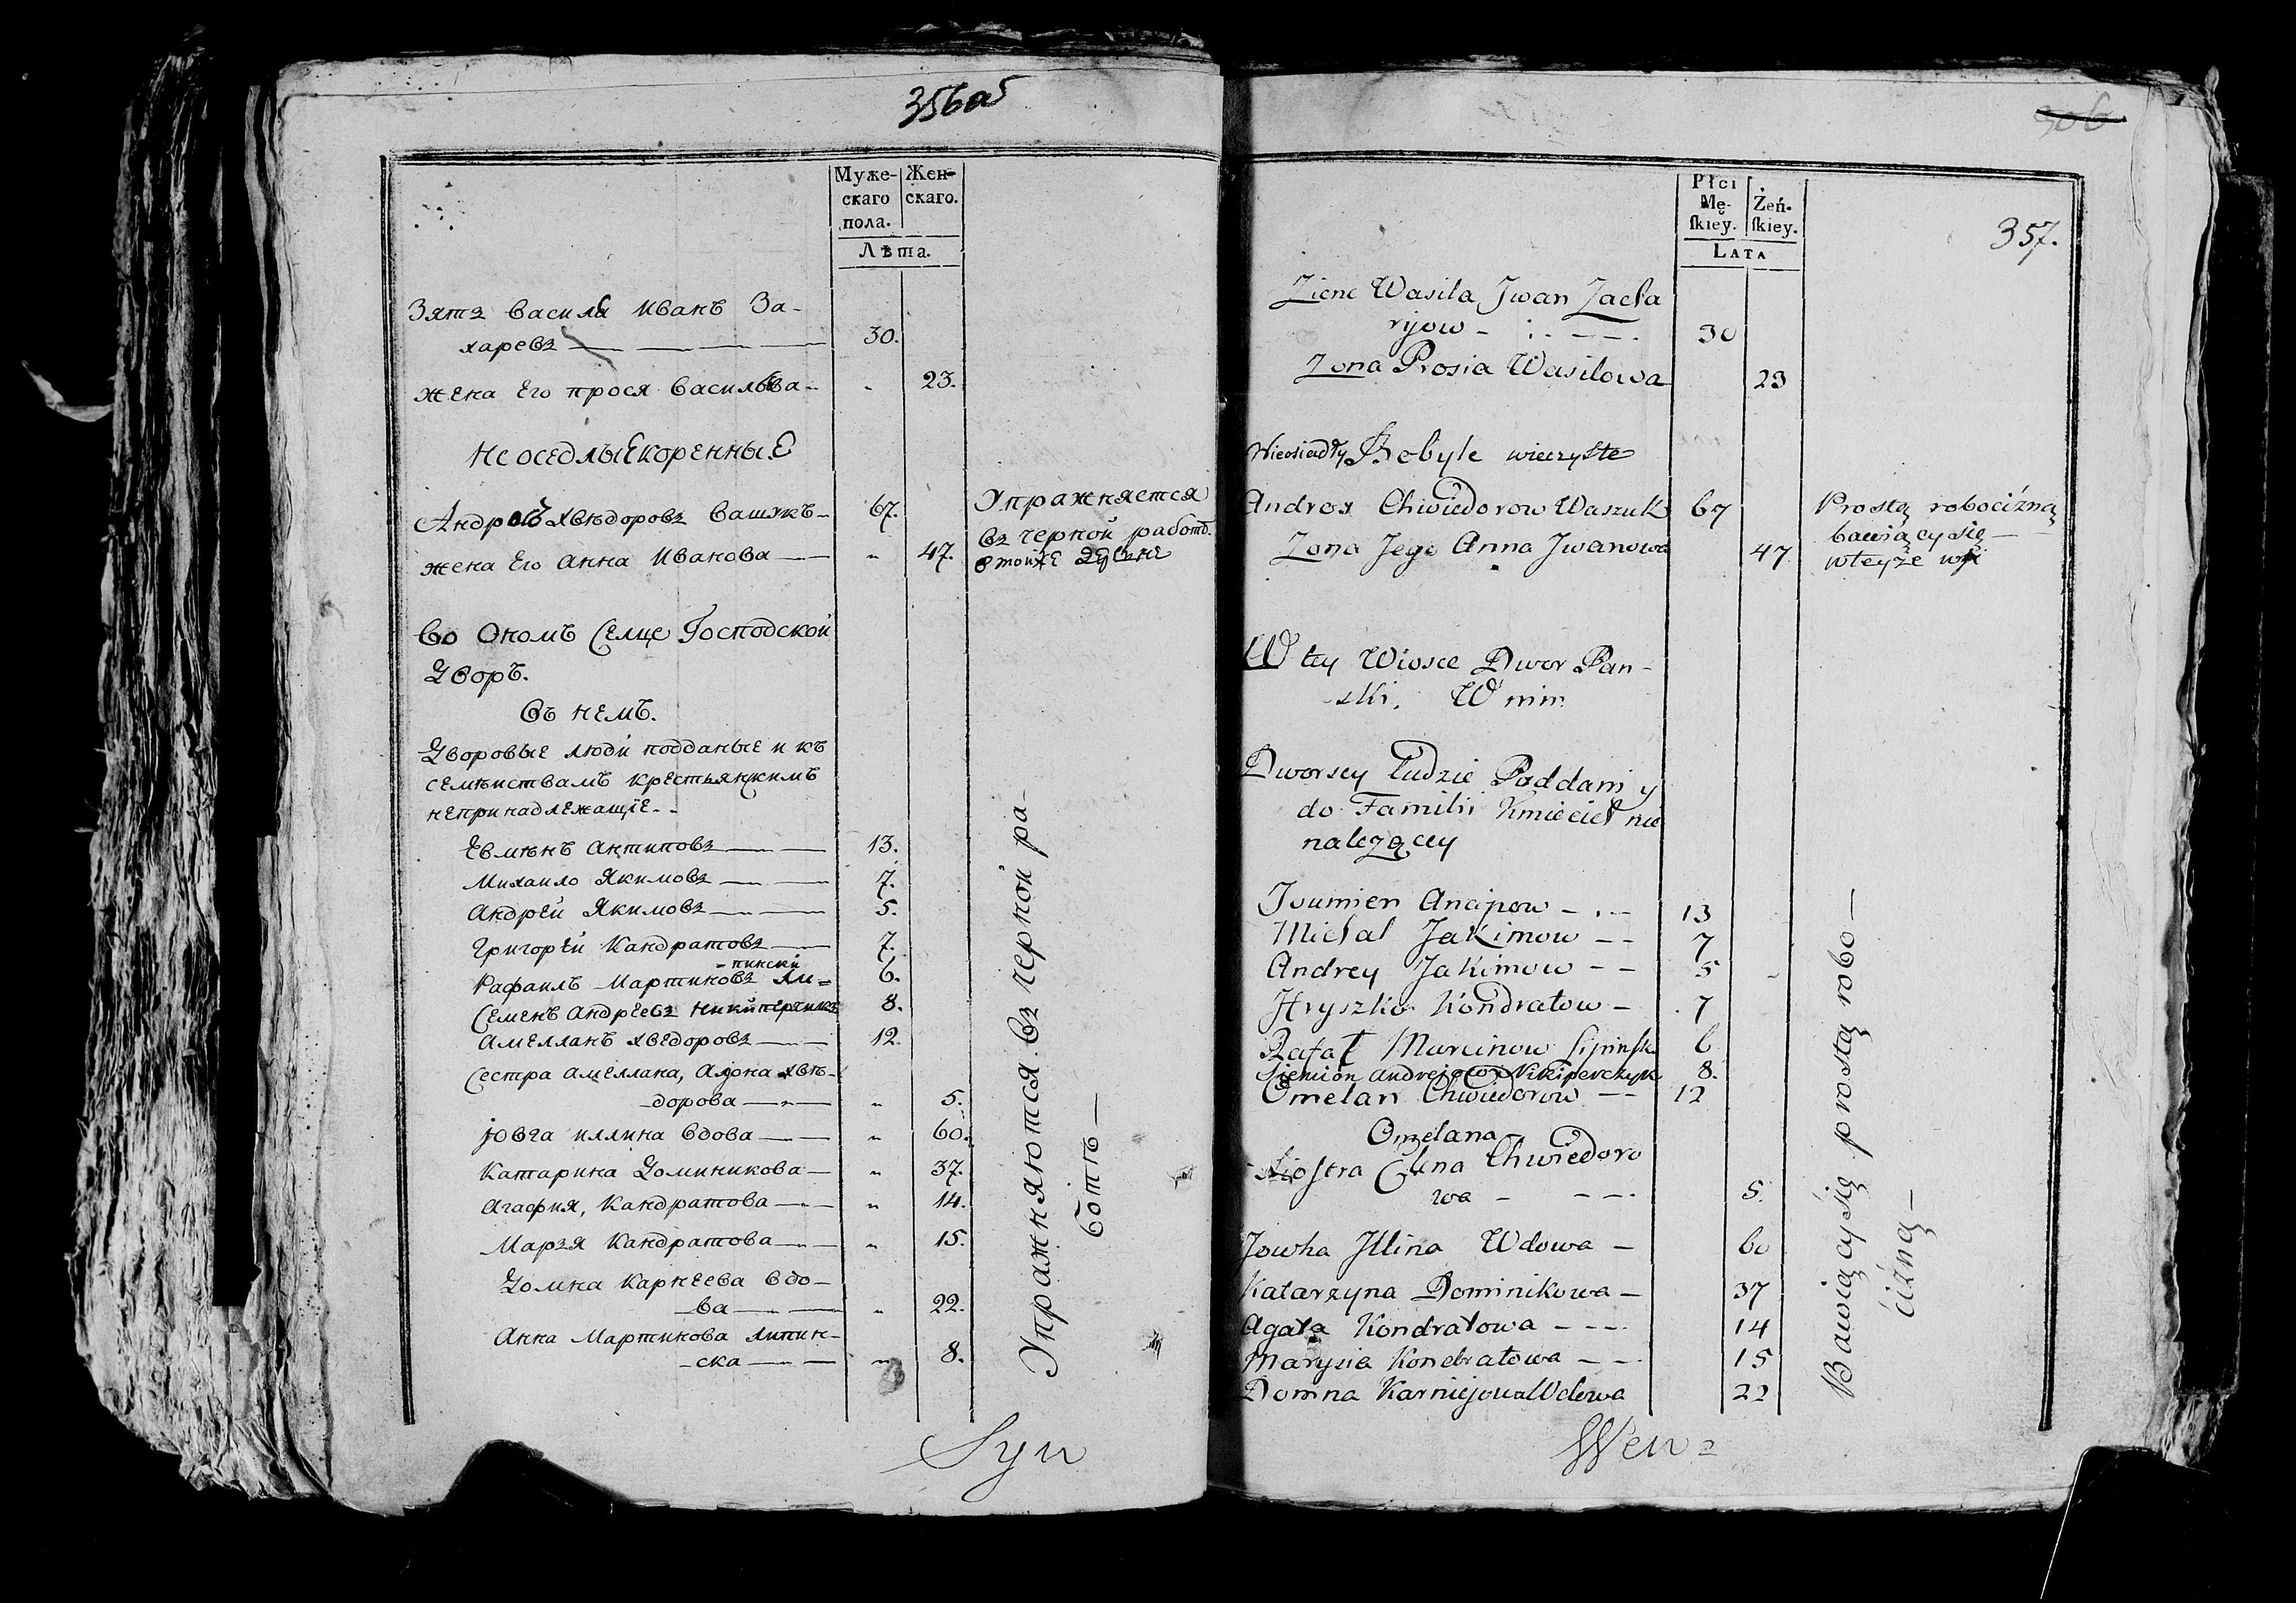 356об
Муже-
скаго
пола.
Жен-
скаго.
Лѣта.
Зять Васила Иванъ За-
харевъ 30.
жена Его прося Васильва 23.
Неоседлые коренные
Андрей Хвѣдоровъ Вашукъ 67.
жена Его Анна Иванова 47.
Упражняется
въ черной работѣ
Во Ономъ Селце Господской
Дворъ.
Въ немъ.
Дворовые люди подданые и къ
семѣиствамъ крестьянскимъ
непринадлежащіе.
Евмѣнъ Антиповъ 13.
Михаило Якимовъ 7.
Андрей Якимовъ 5.
Григорей Кандратовъ 7.
-пински
Рафаилъ Мартиновъ Ли= 6.
Семенъ Андреевъ 8.
Амеллянъ Хведоровъ 12.
Сестра Амеллана, Алѳна Хвѣ-
-дорова 5.
Јовга иллина вдова 60.
Катарина Доминикова 37.
Агафия, Кандратова 14.
Марзя Кандратова 15.
Домна Карнеева вдо-
-ва 22.
Анна Мартинова Липин-
-ска 8.
Упражняются въ черной ра-
ботѣ
Syn
306
357.
Płci
Mę-
ſkiey.
Żeń-
ſkiey.
LATA
Ziene Wasila Jwan Zacha
rijow 30
Zona Prosia Wasilowa 23
Nieosiadły Kobyle wieczyste
Andrey Chwiedorow Waszuk 67
Zona Jego Anna Jwanowa 47
Prostą robocizną
bawiący się
wteyże wsi
W tey Wiosce Dwor Pan-
ski. W nim
Dworscy ludzie Poddani y
do Familii Kmieciey nie
należący
Michal Jakimow 7
Andrey Jakimow 5
Hryszko Kondratow 7
Rafał Marcinow Lipinsk 6
Siemion Andrejow Nikiperczyk 8.
Omelan Chwiedorow 12
Omelana
Siostra Elena Chwiedoro
wa 5.
Jowha Jllina Wdowa 60
Katarzyna Dominikowa 37
Agata Kondratowa 14
Marysia Kondratowa 15
Domna Karniejowa Wdowa 22
Bawiący się prostą robo
cizną
Wen=